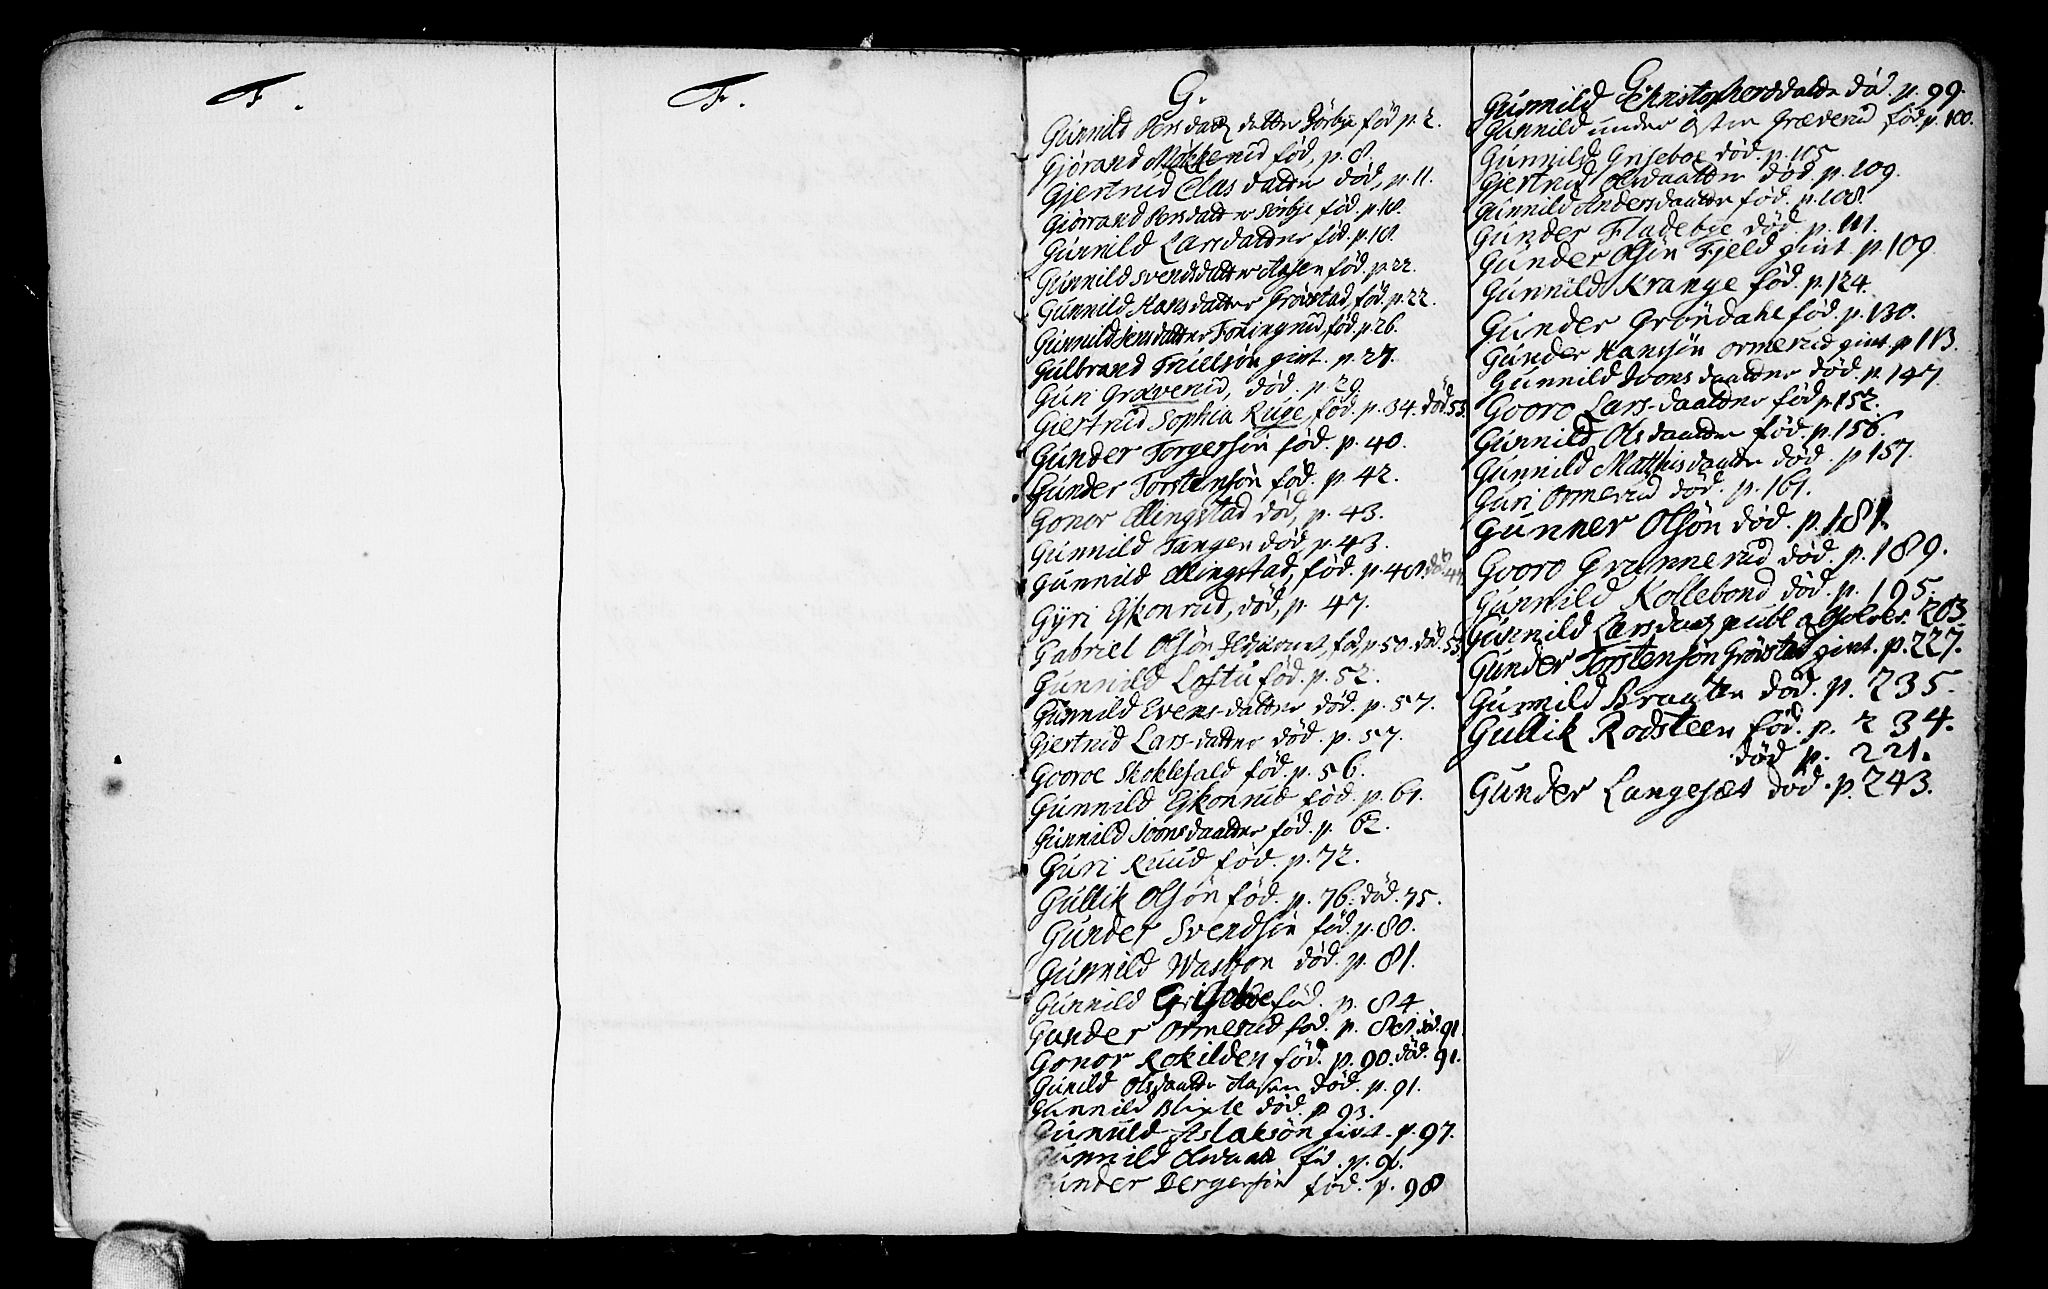 F.
F.
G.
Gunnild Persdatt datter Sörbye föd p. 2.
Gjörand Mökkerud föd, p. 8.
Gjertrud Clas datter död, p. 11.
Giörrand Persdatter Sörbje föd. p. 18.
Gunnild Larsdatter föd. p. 18.
Gunnild Svendsdatter Aasen föd, p. 22.
Gunnild Hansdatter Grövstad, föd. p. 22.
Gunnild Jensdatter Foningrud, föd. p. 26.
Gulbrand Truelsön givt. p. 27.
Guri Gravenid, död. p. 29.
Giertrud Sophia Ruge, föd. p. 34. död. 53.
Gunder Torgersön föd. p. 40.
Gunder Torstensön föd. p. 42.
Gonor Ellingstad död, p. 43.
Gunnild Tangen död, p. 43.
Gunnild Ellingstad, föd. p. 48. död. 44.
Gyri Ejkonrud, död, p. 47.
Gabriel Olsön föd, p. 50. död. 53.
Gunnild Loftu föd. p. 52.
Gunnild Evens-datter död. p. 57.
Gjertrud Lars-datter död. p. 57.
Gooroe Skoklefald föd. p. 56.
Gunnild Ejkonrud föd. p. 61.
Gunnild Joensdaatter föd. p. 62.
Guri Ruud föd. p. 72.
Gullik Olsön föd. p. 76. död. 75.
Gunder Svendsön föd. p. 80.
Gunnild Waskon död. p. 81.
Gunnild Griseboe föd. p. 84.
Gunder Ormerud föd. p. 88. död. 91.
Gonor Rokilden föd. p. 90. död. 91.
Gunild Olsdaatter Aasen död. p. 91.
Gunnild Blixle död. p. 93.
Gunnuld Aslaksön givt. p. 97.
Gunnild Olsdaatt föd. p. 96.
Gunder Bergersön föd. p. 98
G.
Gunnild Christophersdatter död. p. 99.
Gunnild under Östre Græverud föd. p. 100.
Gunnild Griseboe död. p. 115
Gjertrud Olsdaatter död p. 109.
Gunnild Andersdaatter föd. p. 108.
Gunder Fladebye död. p. 111.
Gunder Olsön Fjeld givt p. 109.
Gunnild Krange föd. p. 124.
Gunder Gröndahl föd. p. 130.
Gunder Hansön Ormerud givt. p. 113.
Gunnild Joens daatter död. p. 147.
Gooro Lars-daatter föd p. 152.
Gunnild Olsdaatter föd. p. 156.
Gunnild Matthisdaatter död. p. 157.
Guri Ormerud död. p. 161.
Gunner Olsön död. p. 181.
Gooro Grannerud död. p. 189.
Gunnild Kollebond död. p. 195.
Gunnild Larsdaatt publ. absolv. 203.
Gunder Torstensön Grövstad givt. p. 227.
Gunnild Braaten död. p. 235.
Gullik Rodsteen föd. p. 234.
död p. 221.
Gunder Langesæt död. p. 243.